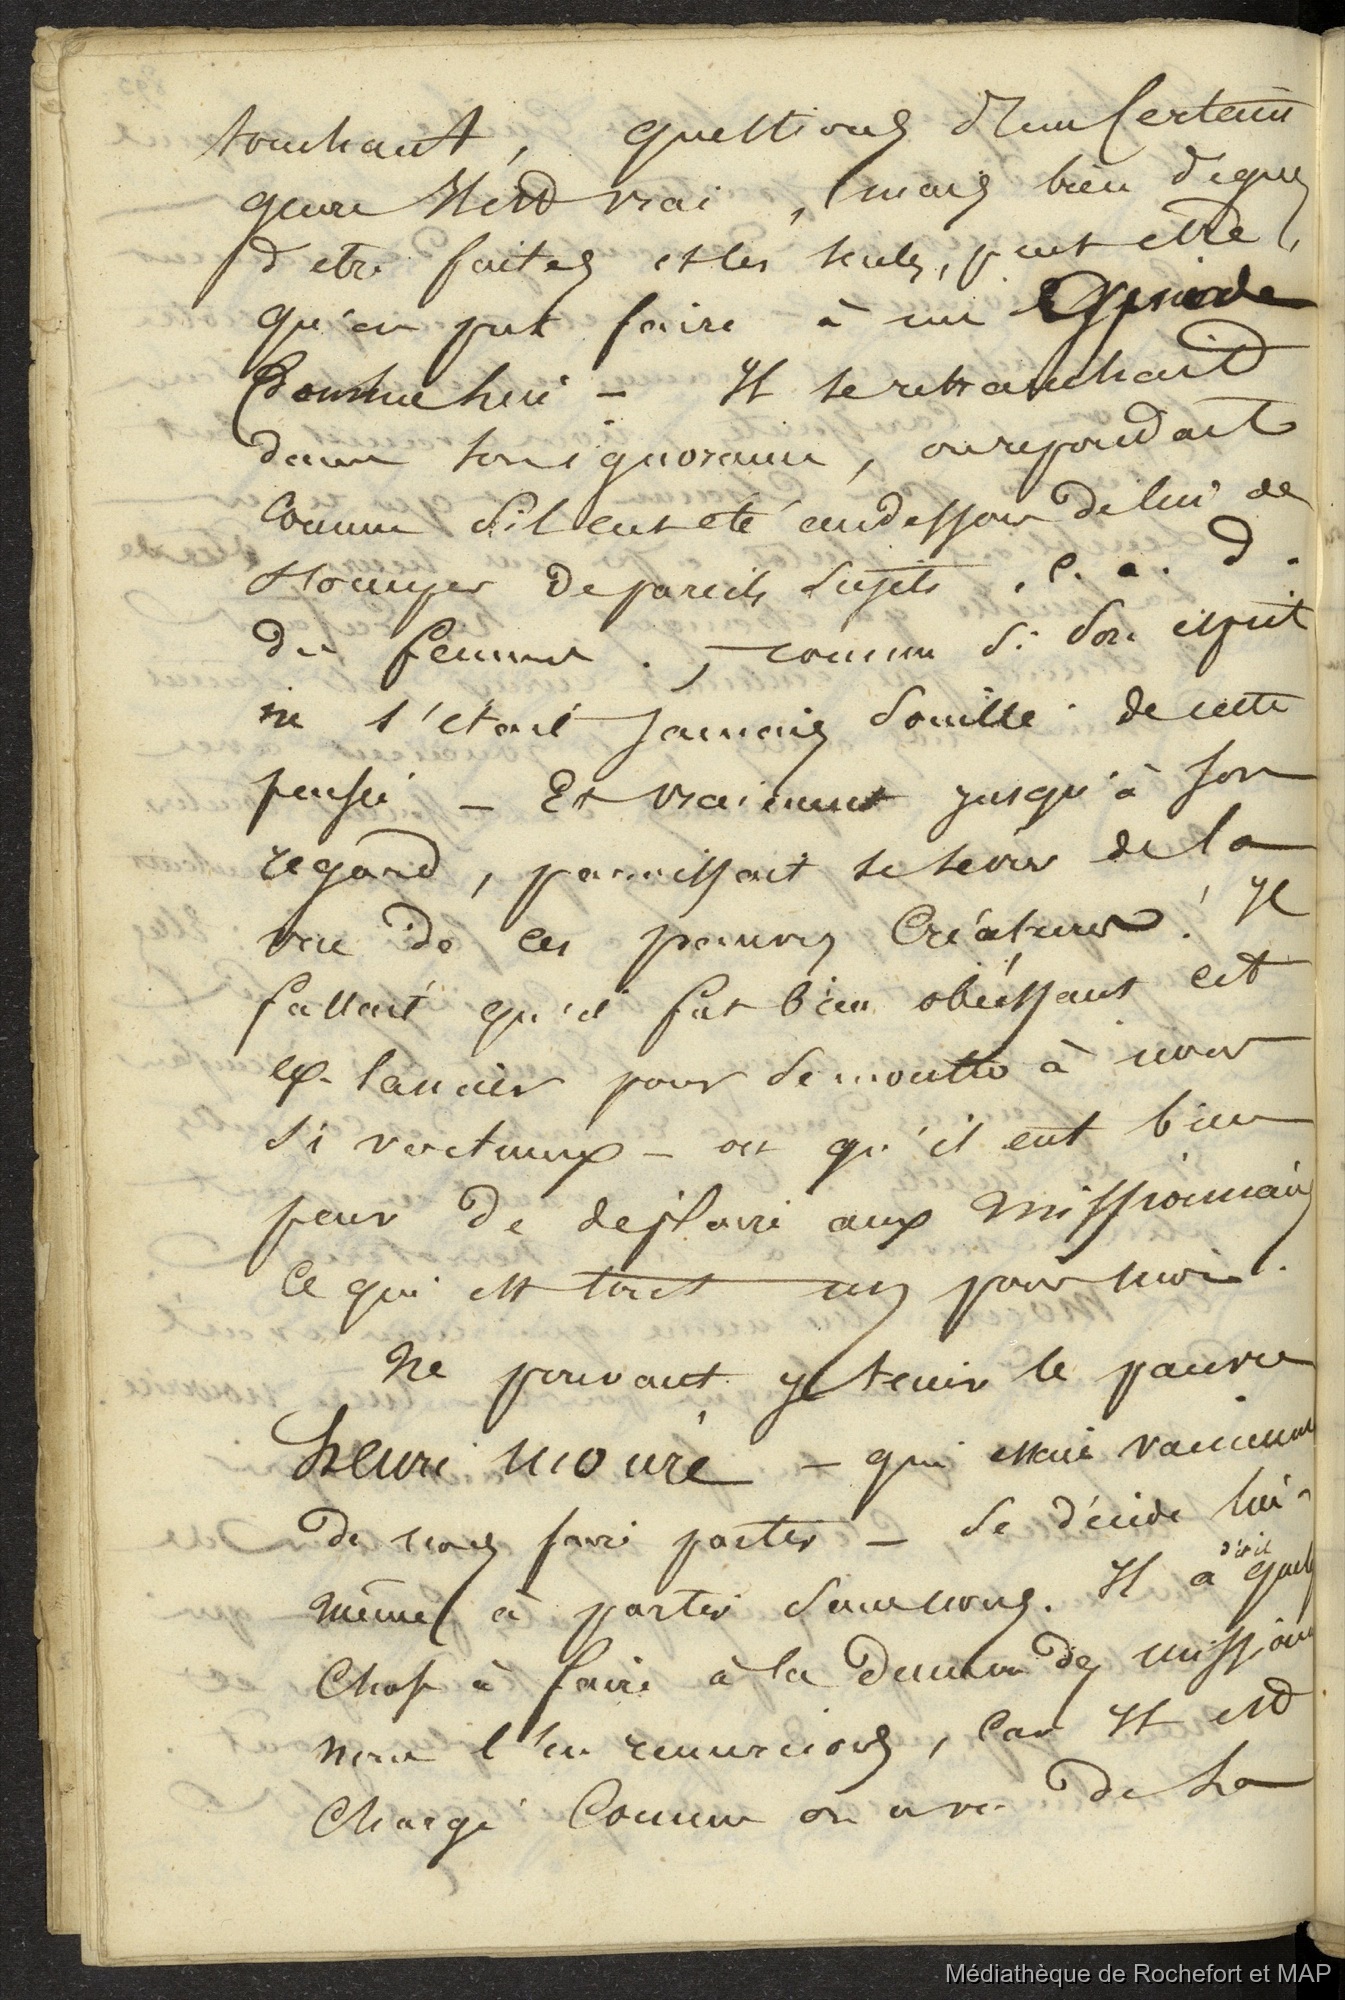 touchant, questions d'un certain
genre Il est vrai, mais bien dignes
d etre faites et les seules, peut etre,
qu'on put faire à un
comme lui - Il se retranchait
dans son ignorance, ou repondait
comme s'il eut eté audessous de lui de
s'occuper de pareils sujets. c. a. d.
des femmes. , comme si son esprit
ne s'etait jamais souillé de cette
pensée - Et vraiment jusqu'à son
regard, paraissait se sevrer de la
vue de ces pauvres Créatures! Il
fallait qu'il fut bien obeissant cet
ex-lancier pour se montrer à nous
si vertueux - ou qu'il eut bien
peur de deplaire aux missionnaires
ce qui est tout un pour moi.
Ne pouvant y tenir le pauvre
henri mouré - qui essaie vainement
de nous faire parter - se décide lui-
même à partir sans nous. Il a dit-il quelq
chose à faire à la demeure des mission
nous l'en remercions, car Il est
chargé comme on a vu de la
Médiathèque de Rochefort et MAP